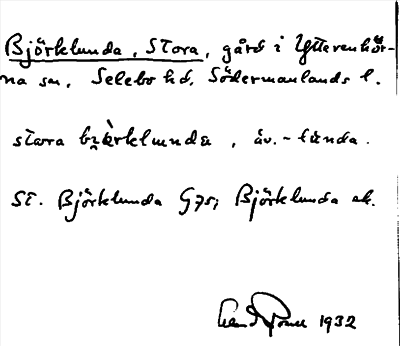 Björklunda, Stora, gård i Ytterenhör-
na sn, Selebo hd, Södermanlands l.
stora bjærklunda, äv. -lunda.
St. Björklunda G75; Björklunda ek.
1932